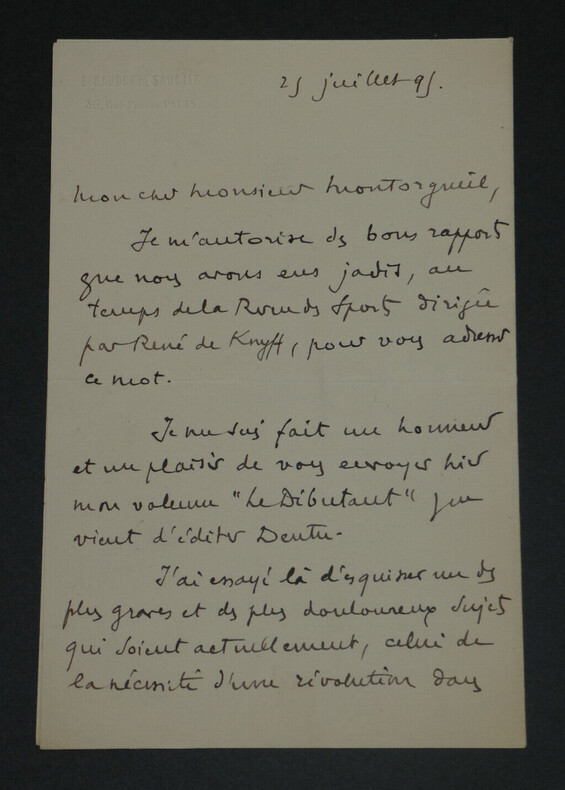 L. BAUDRY DE SAUNIER
25 juillet 95.
Mon cher Monsieur Montorgueil,
Je m'autorise des bons rapports
que nous avons eus jadis, au
temps de la Revue des Sports dirigée
par René de Knyff, pour vous adresser
ce mot.
Je me suis fait un honneur
et un plaisir de vous envoyer hier
mon volume "Le Débutant" que
vient d'éditer Dentu.
J'ai essayé là d'esquisser un des
plus graves et des plus douloureux sujets
qui soient actuellement, celui de
la nécessité d'une révolution dans